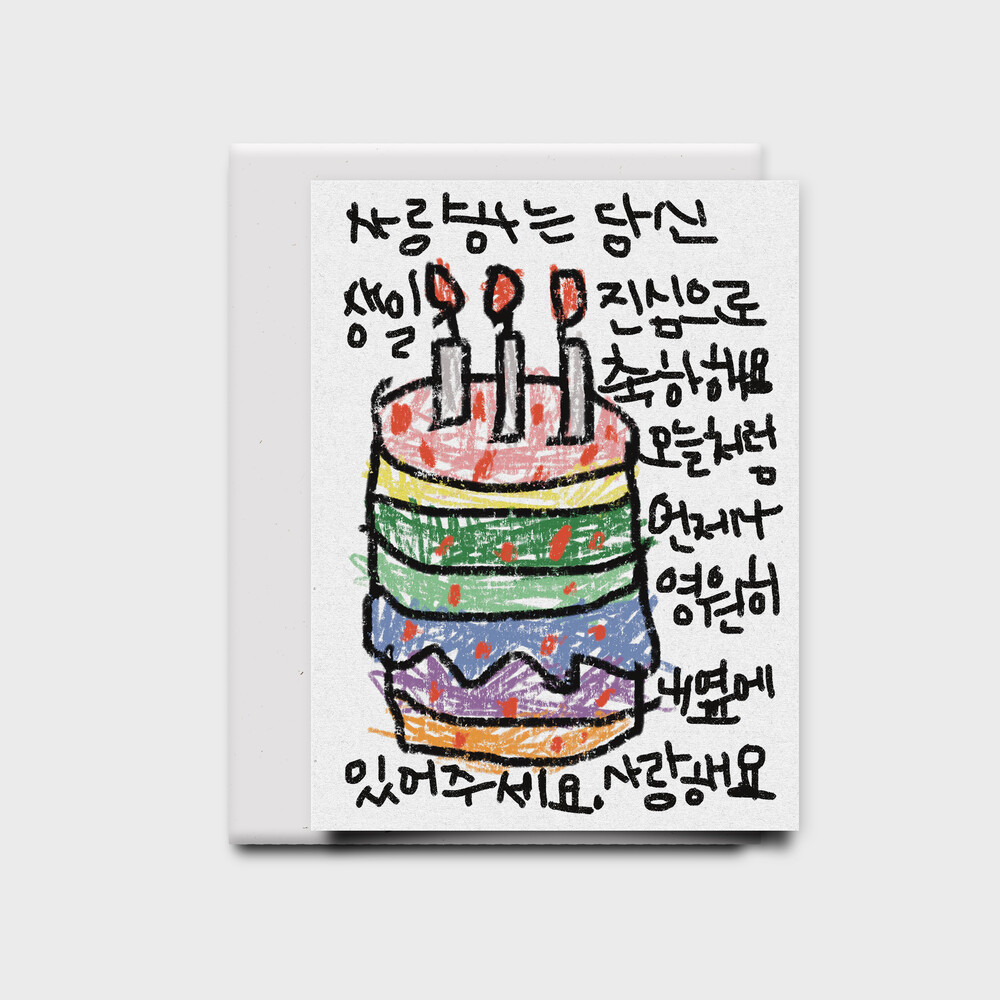 사랑하는 당신
생일 진심으로
축하해요
오늘처럼
언제나
영원히
내옆에
있어주세요. 사랑해요